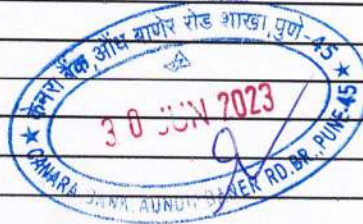 ★ केनरा बैंक, औंध बाणेर रोड शाखा पुणे-45 ★
30 JUN 2023
CANARA BANK, AUNDH BANER RD. BR., PUNE-45